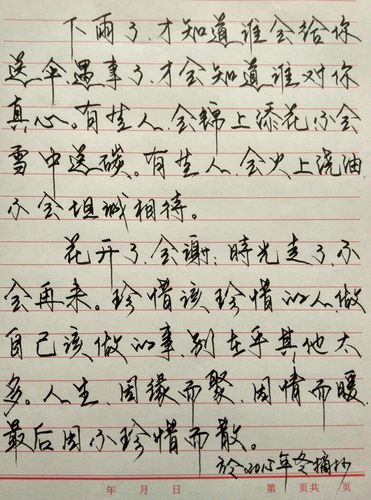 下雨了，才知道谁会给你
送伞，遇事了，才会知道谁对你
真心。有些人，会锦上添花，不会
雪中送碳。有些人，会火上浇油，
不会坦诚相待。
花开了，会谢；時光走了，不
会再来。珍惜该珍惜的人，做
自己该做的事，别在乎其他太
多。人生，因缘而聚，因情而暖，
最后因不珍惜而散。
於2015年冬摘抄
年 月 日 第 页共 页